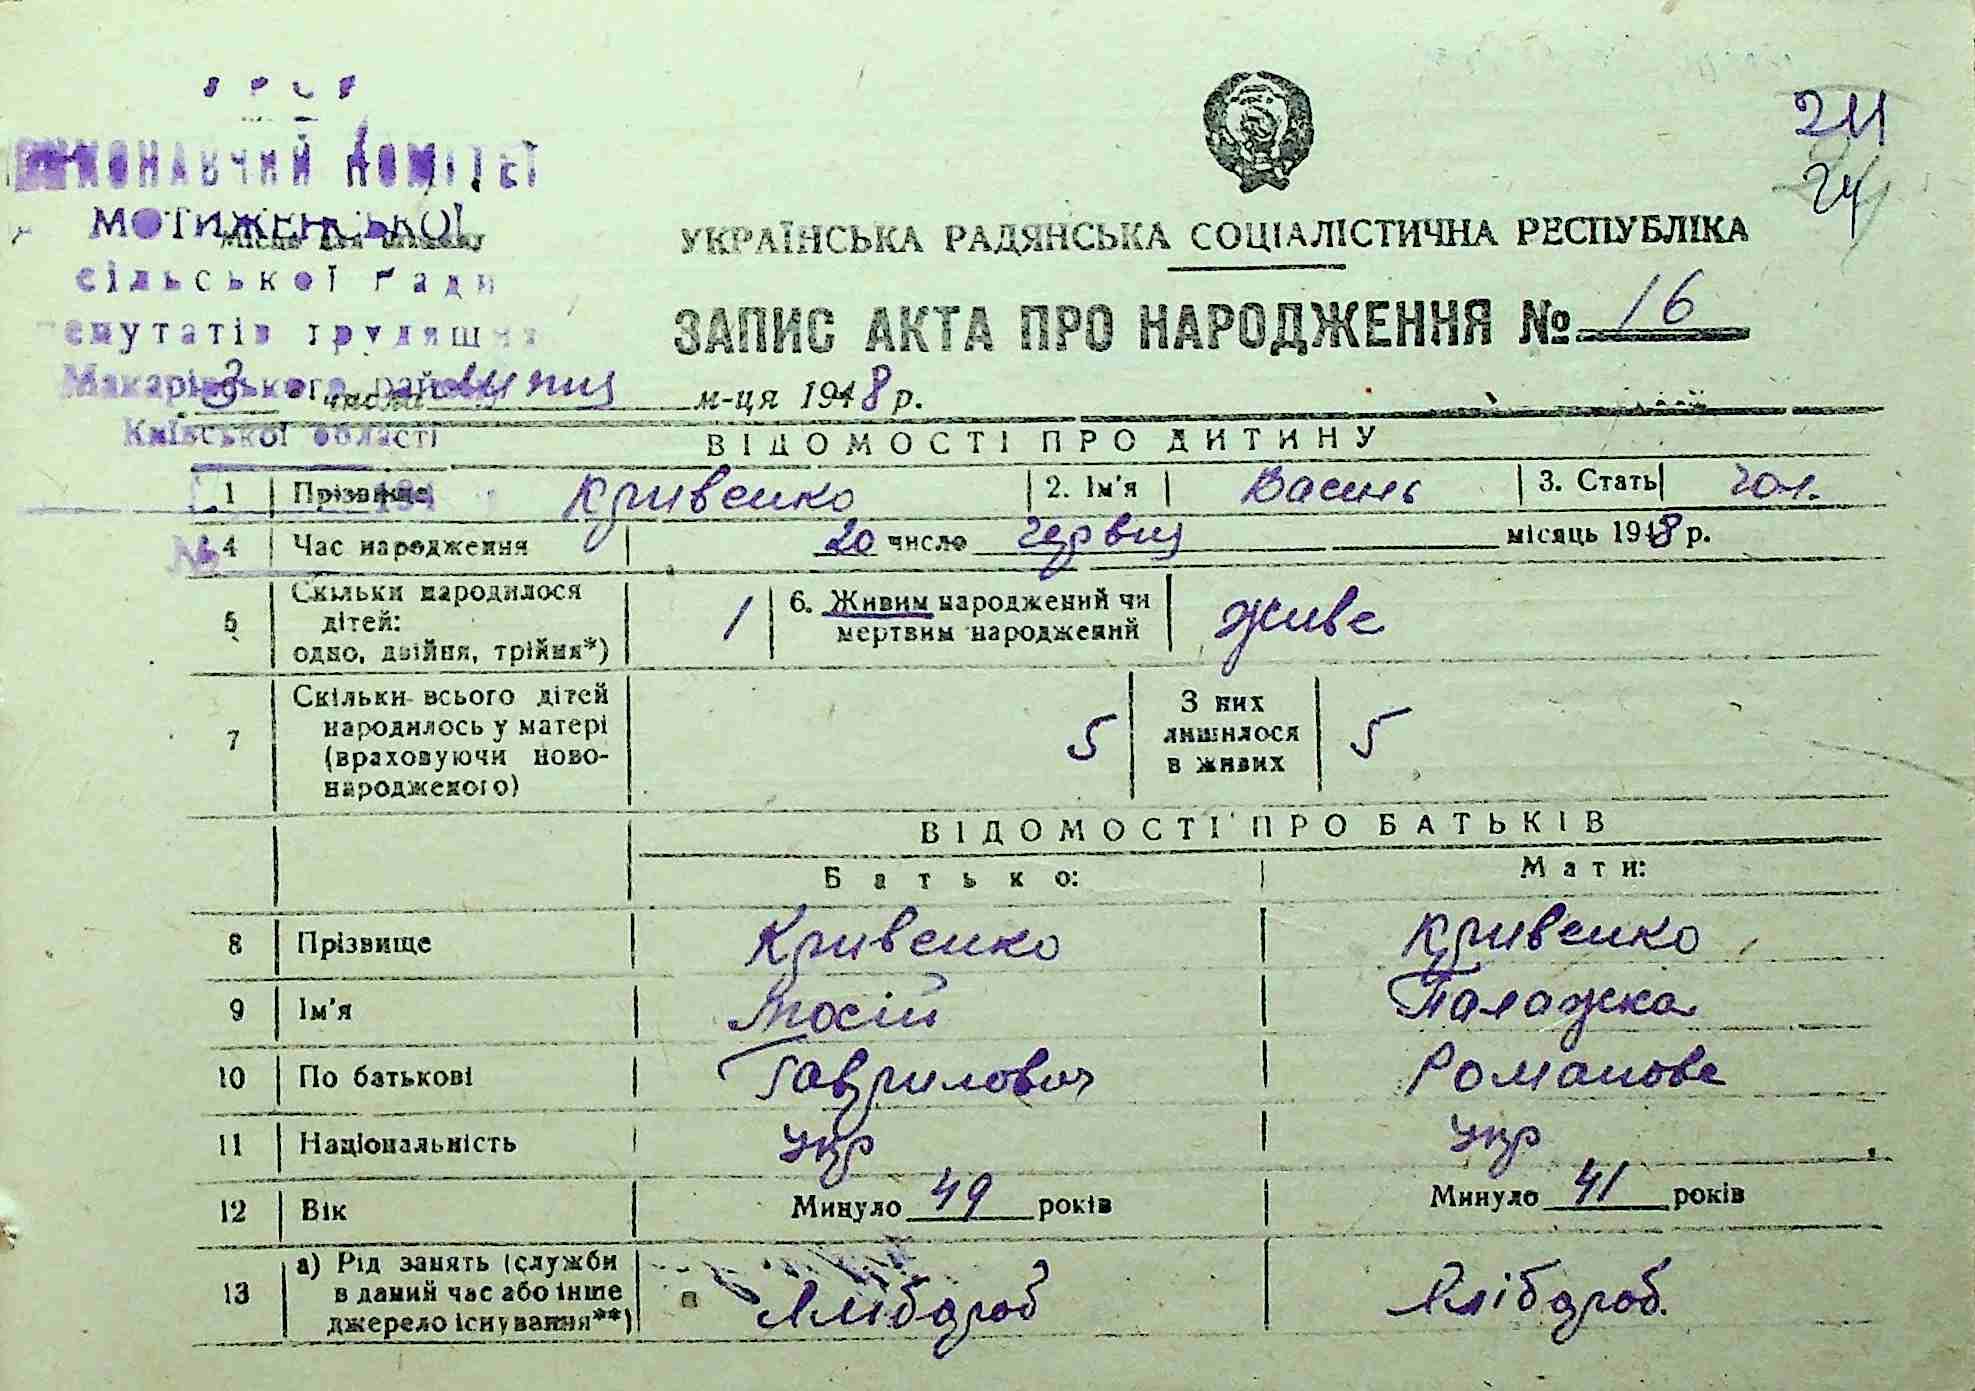 УРСР
ВИКОНАВЧИЙ КОМІТЕТ
МОТИЖЕНСЬКОЇ
Місце для штампу
сільської Ради
депутатів трудящих
Макарівського району
Київської області
194
№
211
24
УКРАЇНСЬКА РАДЯНСЬКА СОЦІАЛІСТИЧНА РЕСПУБЛІКА
ЗАПИС АКТА ПРО НАРОДЖЕННЯ № 16
3 числа липня м-ця 1948 р.
ВІДОМОСТІ ПРО ДИТИНУ
1 Прізвище Кривенко 2. Ім'я Василь 3. Стать чол.
4 Час народження 20 число червня місяць 1948 р.
5 Скільки народилося дітей: одно, двійня, трійня*) 1 6. Живим народжений чи мертвим народжений живе
7 Скільки всього дітей народилось у матері (враховуючи ново-народженого) 5 З них лишилося в живих 5
ВІДОМОСТІ ПРО БАТЬКІВ
Батько: Мати:
8 Прізвище Кривенко Кривенко
9 Ім'я Мосій Палажка
10 По батькові Гаврилович Романовє
11 Національність укр укр
12 Вік Минуло 49 років Минуло 41 років
13 а) Рід занять (служби в даний час або інше джерело існування**) Хлібороб Хлібороб.